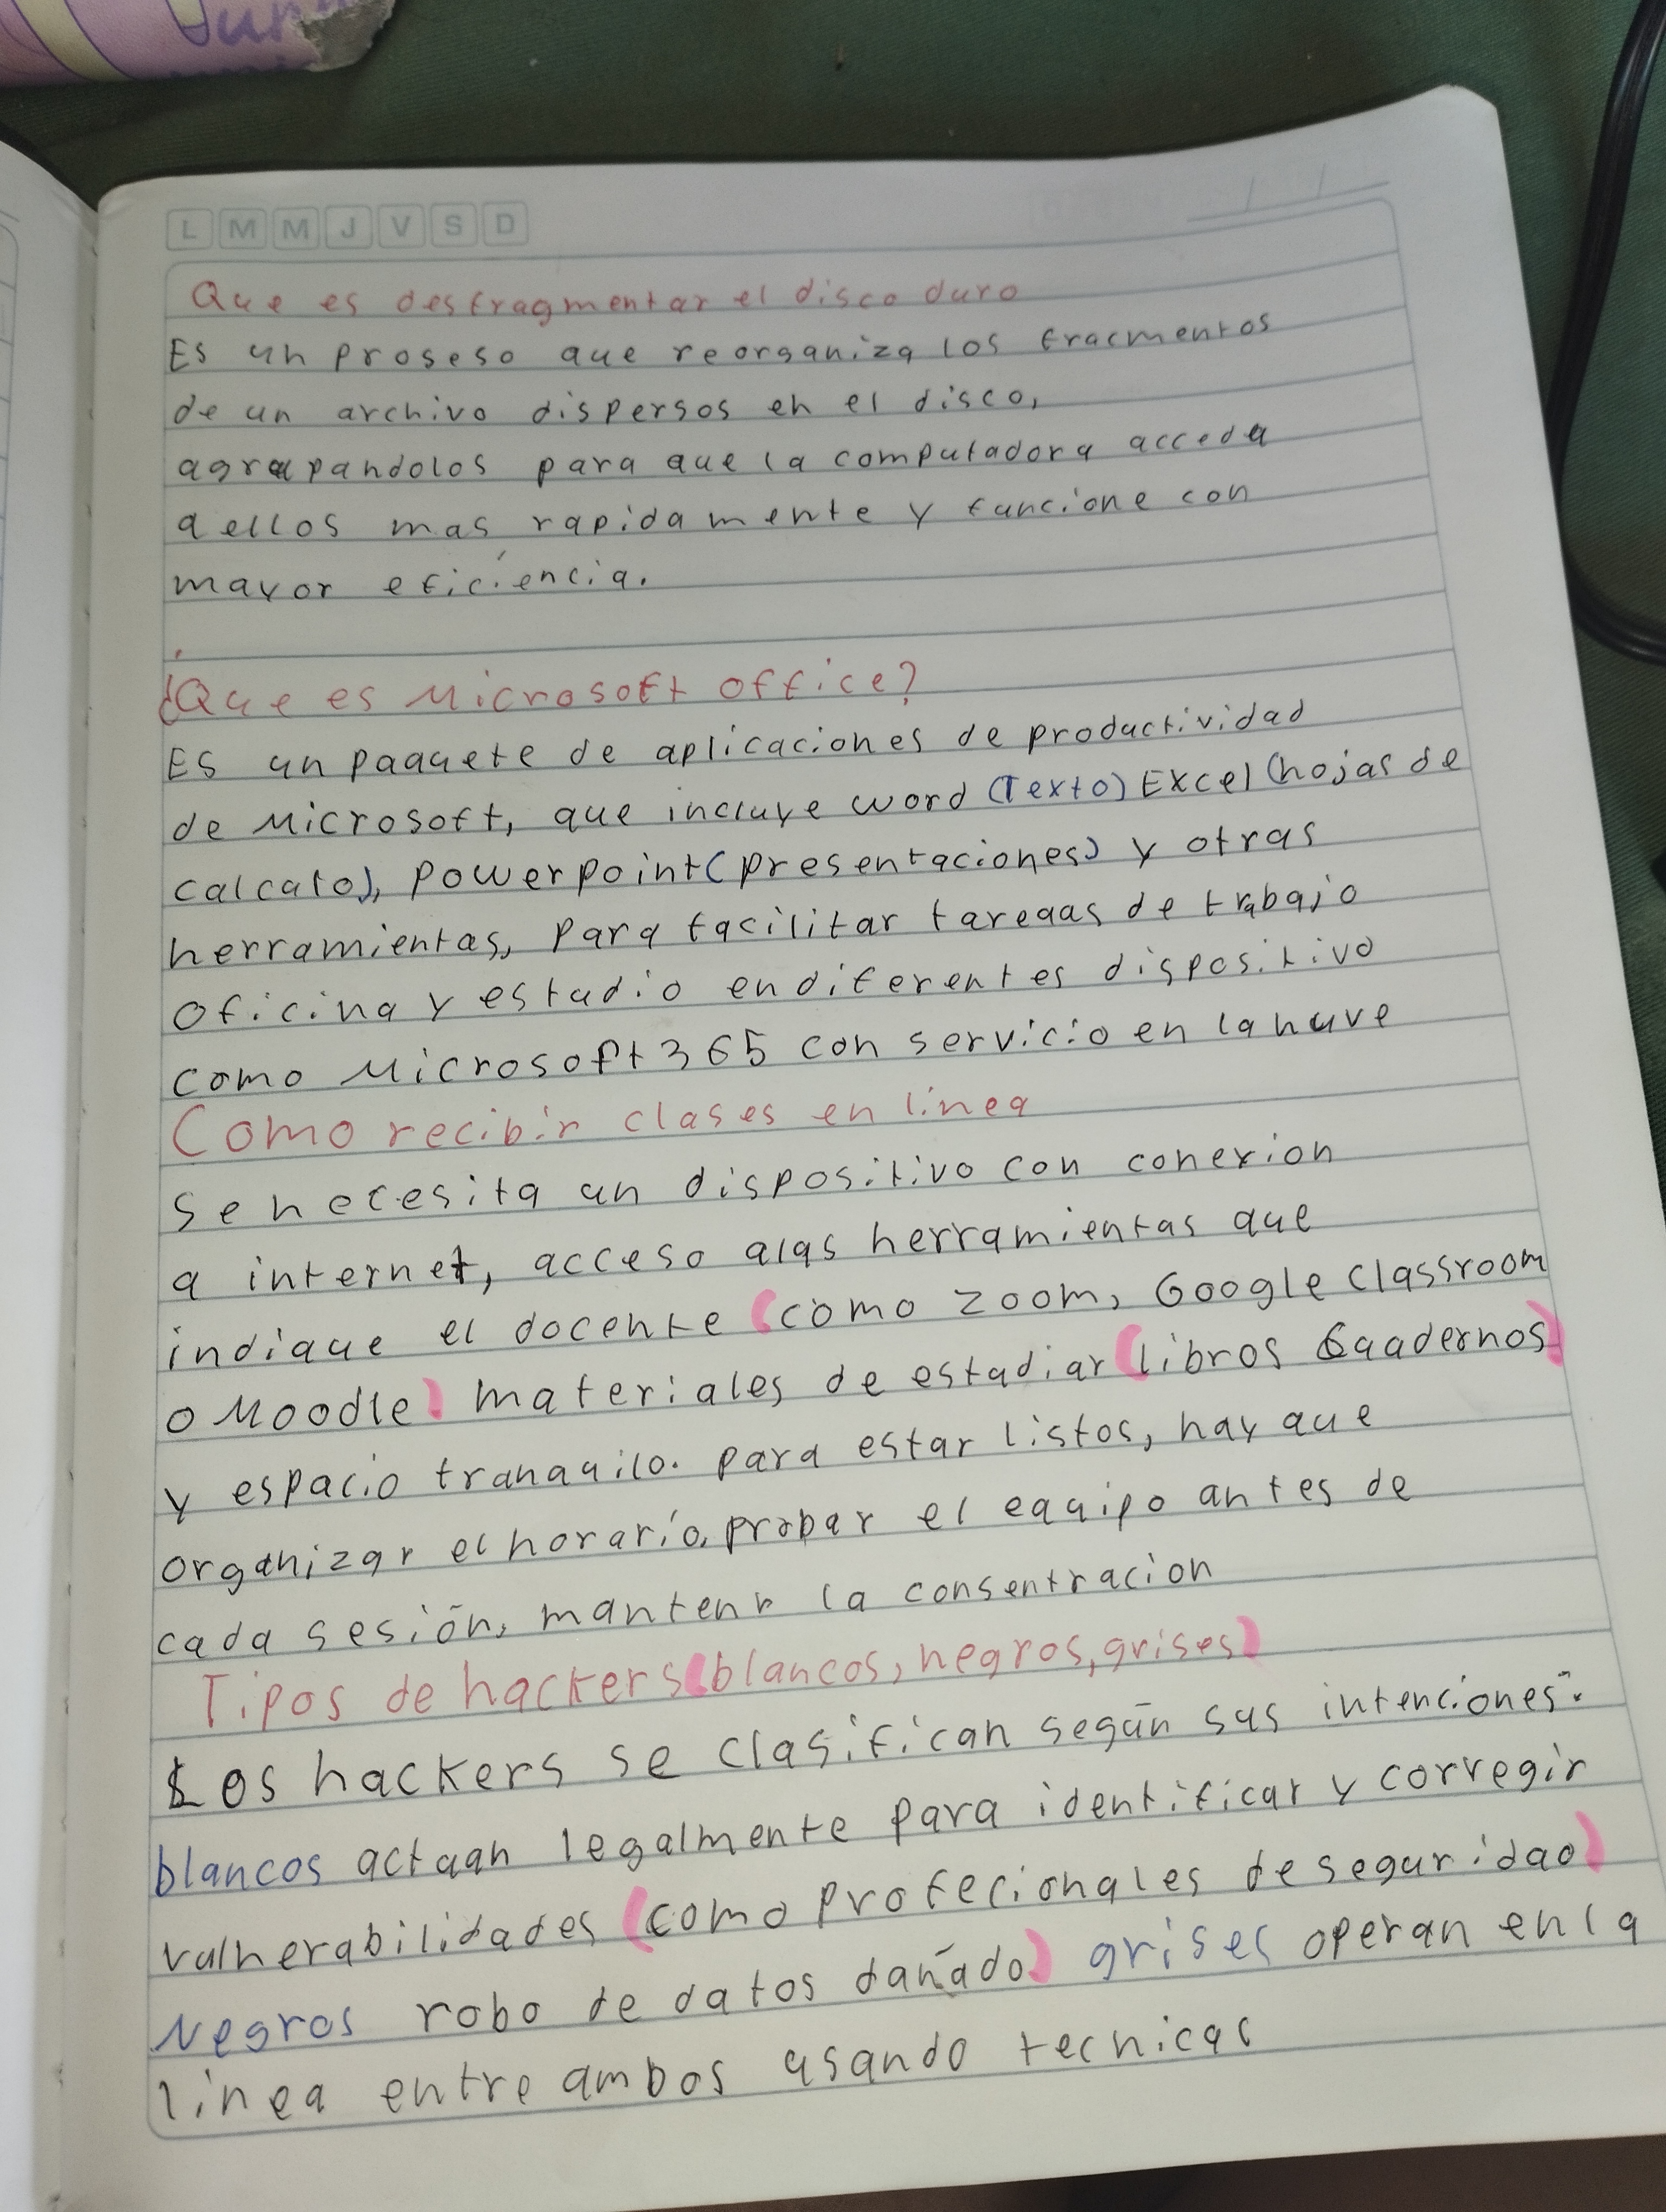 Jun
L M M J V S D
Que es desfragmentar el disco duro
Es un proseso que reorganiza los fracmentos
de un archivo dispersos en el disco,
agrupandolos para que la computadora acceda
a ellos mas rapidamente y funcione con
mayor eficiencia.
¿Que es Microsoft office?
Es un paquete de aplicaciones de productividad
de Microsoft, que incluye word (Texto) Excel (hojas de
calculo), powerpoint (presentaciones) y otras
herramientas, para facilitar tareaas de trabajo
oficina y estudio en diferentes dispositivo
como Microsoft 365 con servicio en la nuve
Como recibir clases en linea
Se necesita un dispositivo con conexion
a internet, acceso a las herramientas que
indique el docente (como zoom, Google classroom
o Moodle) materiales de estudiar (libros Cuadernos)
y espacio tranquilo. para estar listos, hay que
organizar el horario, probar el equipo antes de
cada sesión, mantenr la consentracion
Tipos de hackers (blancos, negros, grises)
Los hackers se clasifican según sus intenciones.
blancos actuan legalmente para identificar y corregir
vulnerabilidades (como profecionales de seguridad)
Negros robo de datos dañado) grises operan en la
linea entre ambos usando tecnicas